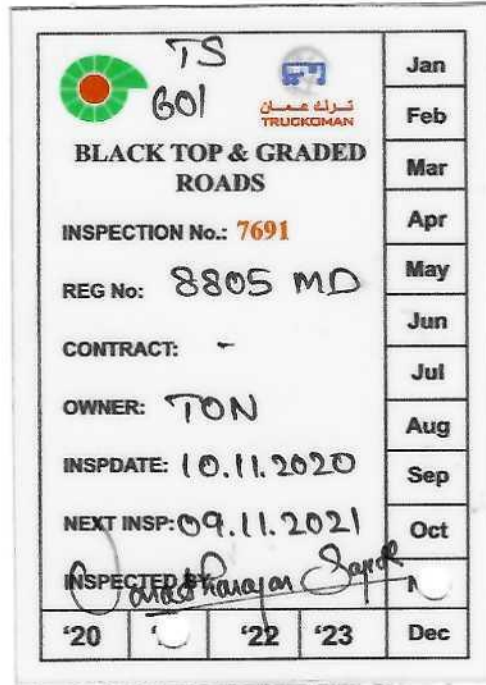 TS
601
ترك عمان
TRUCKOMAN
BLACK TOP & GRADED
ROADS
INSPECTION No.: 7691
REG No: 8805 MD
CONTRACT: -
OWNER: TON
INSPDATE: 10.11.2020
NEXT INSP: 09.11.2021
INSPECTED BY:
'20 '22 '23
Jan
Feb
Mar
Apr
May
Jun
Jul
Aug
Sep
Oct
Dec